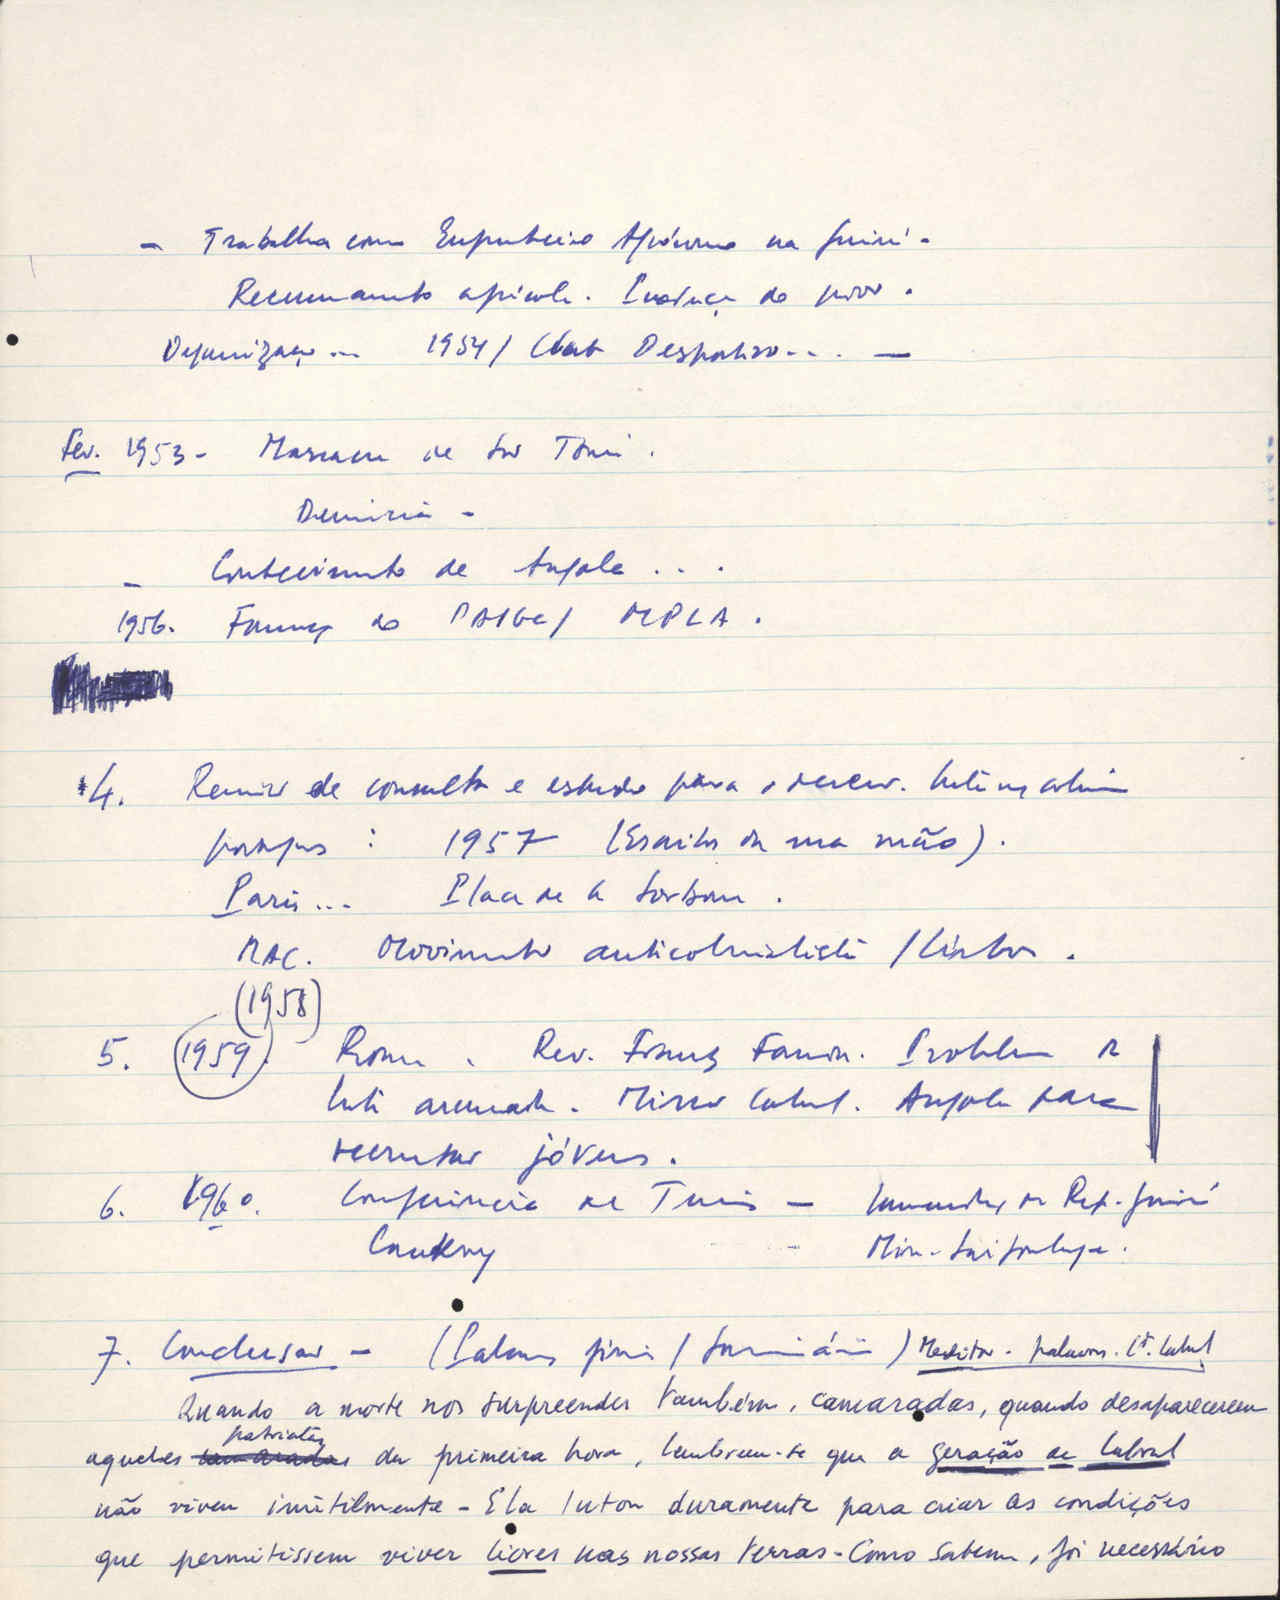 - Trabalha como Engenheiro Agrónomo na Guiné -
Recenseamento agrícola. do povo.
Organização ... 1954 / Club Desportivo... -
Fev. 1953 - Massacre de São Tomé.
Denúncia -
- Conhecimento de Angola ...
1956. Formação do PAIGC / MPLA.
4. Reunião de consulta e estudo para o desenv. luta
portuguesas : 1957 (Escritos da sua mão).
Paris... Place de la Sorbonne.
MAC. Movimento anticolonialista / Lisboa.
(1958)
5. 1959. Roma. Rev. Frantz Fanon. Problema da
luta armada. Missão Cabral. Angola para
recrutar jóvens.
6. 1960. Conferência de Tunis - Rep. Guiné
Conakry Min.
7. Conclusão - (Palavras finais / Seminário) Meditar. palavras. Cabral
Quando a morte nos surpreender também, camaradas, quando desaparecerem
patriotas
aqueles camaradas da primeira hora, lembrem-se que a geração de Cabral
não viveu inutilmente - Ela lutou duramente para criar as condições
que permitissem viver livres nas nossas terras - Como sabem, foi necessário